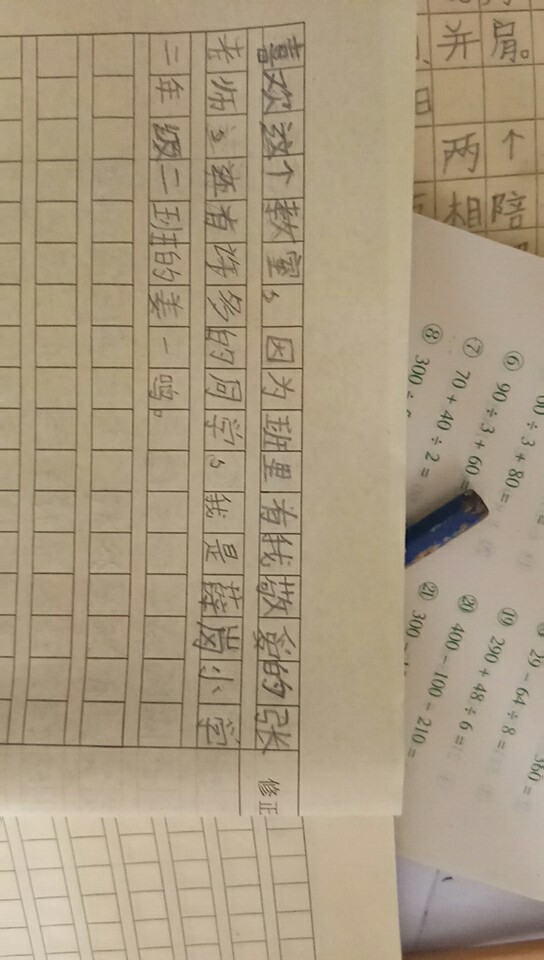 喜欢这个教室，因为班里有我敬爱的张
老师，还有许多的同学，我是薛岗小学
二年级二班的姜一鸣。
修正
并肩。
两个
相陪
60÷3+80=
⑥ 90÷3+60=
⑦ 70+40÷2=
⑧ 300÷
360=
29-64÷8=
⑲ 290+48÷6=
⑳ 400-100-210=
㉑ 300-